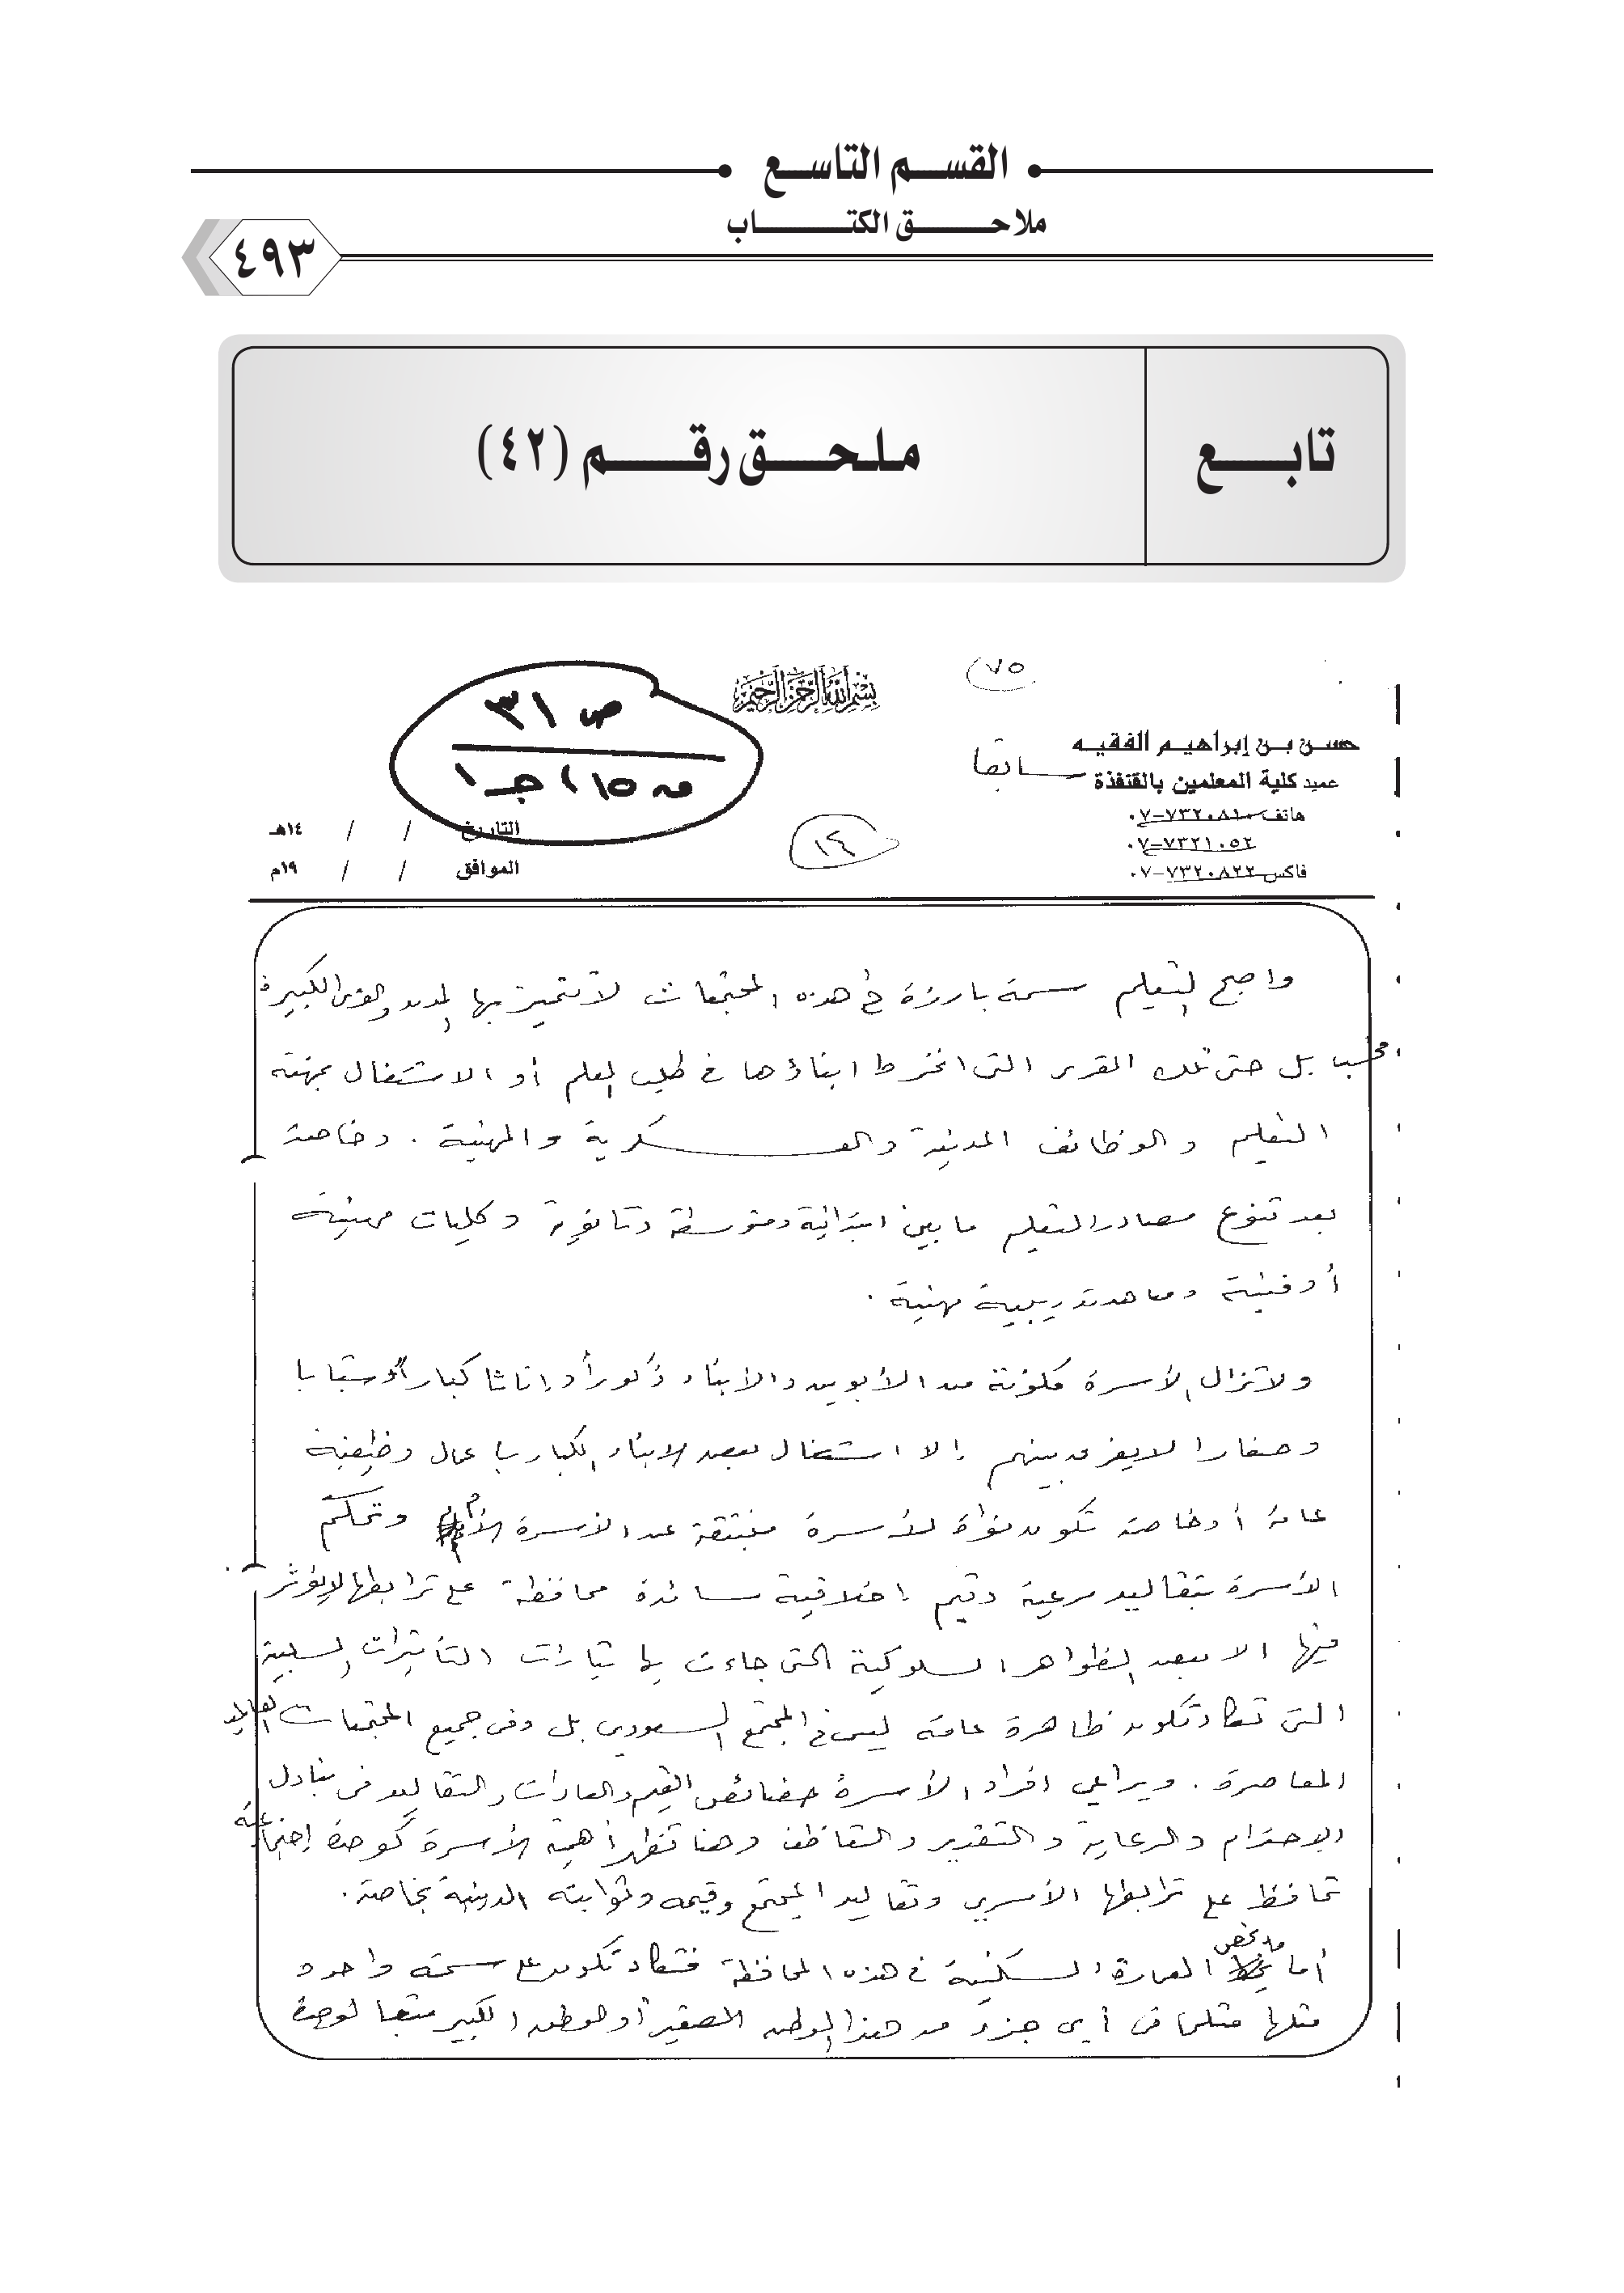 القسم التاسع
ملاحق الكتاب
٤٩٣
تابع
ملحق رقم (٤٢)
٧٥
بسم الله الرحمن الرحيم
ص ٣١
١٥ ، جـ ١
حسن بن إبراهيم الفقيه
عميد كلية المعلمين بالقنفذة سابقا
هاتف ٧٣٢٠٨١٠-٠٧
٧٣٢١٠٥٢-٠٧
فاكس ٧٣٢٠٨٢٢-٠٧
١٤
التاريخ / / ١٤هـ
الموافق / / ١٩م
واصبح التعليم سمة بارزة في هذه المجتمعات لا تتميز بها المدن والقرى الكبيرة
فحسب بل حتى تلك القرى التي انخرط ابناؤها في طلب العلم أو الاشتغال بمهنة
التعليم والوظائف المدنية والعسكرية والمهنية . وخاصة
بعد تنوع مصادر التعليم ما بين ابتدائية ومتوسطة وثانوية وكليات مهنية
أو فنية ومعاهد تدريبية مهنية .
ولا تزال الأسرة مكونة من الأبوين والأبناء ذكوراً وإناثا كباراً وشبابا
وصغارا لا يفرق بينهم إلا اشتغال بعض الابناء الكبار باعمال وظيفية
عامة أو خاصة تكون نواة لأسرة منبثقة عن الأسرة الأم وتحكم
الأسرة بتقاليد مرعية وقيم اخلاقية سائدة محافظة على ترابطها لا يؤثر
فيها الا بعض الظواهر السلوكية التي جاءت بها تيارات التأثيرات السلبية
التي تكاد تكون ظاهرة عامة ليس في المجتمع السعودي بل وفى جميع المجتمعات
المعاصرة . ويراعي افراد الأسرة خصائص القيم والعادات والتقاليد في تبادل
الاحترام والرعاية والتقدير والتعاطف وهنا تظهر أهمية الأسرة كوحدة إجتماعية
تحافظ على ترابطها الأسري وتقاليد المجتمع وقيمه وثوابته الدينية بخاصة .
أما ما يخص العمارة السكنية في هذه المحافظة فتكاد تكون على سمة واحدة
مثلها مثل ما في أي جزء من هذا الوطن الصغير أو الوطن الكبير متبعا لوحدة